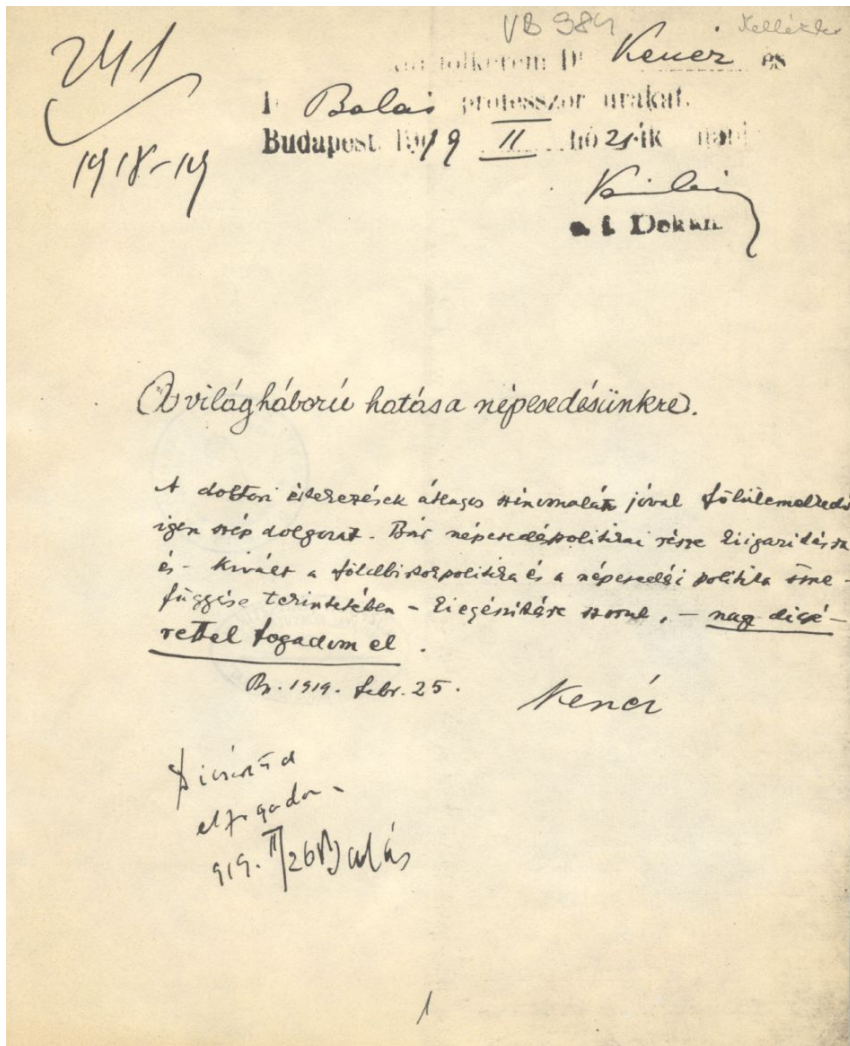 VB 984
241
1918-19
fölkérem Dr Kenéz és
Balás professzor urakat.
Budapest, 1919 II hó 21-ik
a. i. Dékán.
A világháború hatása népesedésünkre.
A doktori értekezések átlagos színvonalán jóval fölülemelkedő
igen szép dolgozat. Bár népesedéspolitikai része kiigazításra
és - kivált a földbirtokpolitika és a népesedési politika össze-
függése tekintetében - kiegészítésre szorul, - nagy dicsé-
rettel fogadom el.
Bp. 1919. febr. 25.
Kenéz
Dicsérettel
elfogadom
919. II/26 Balás
1